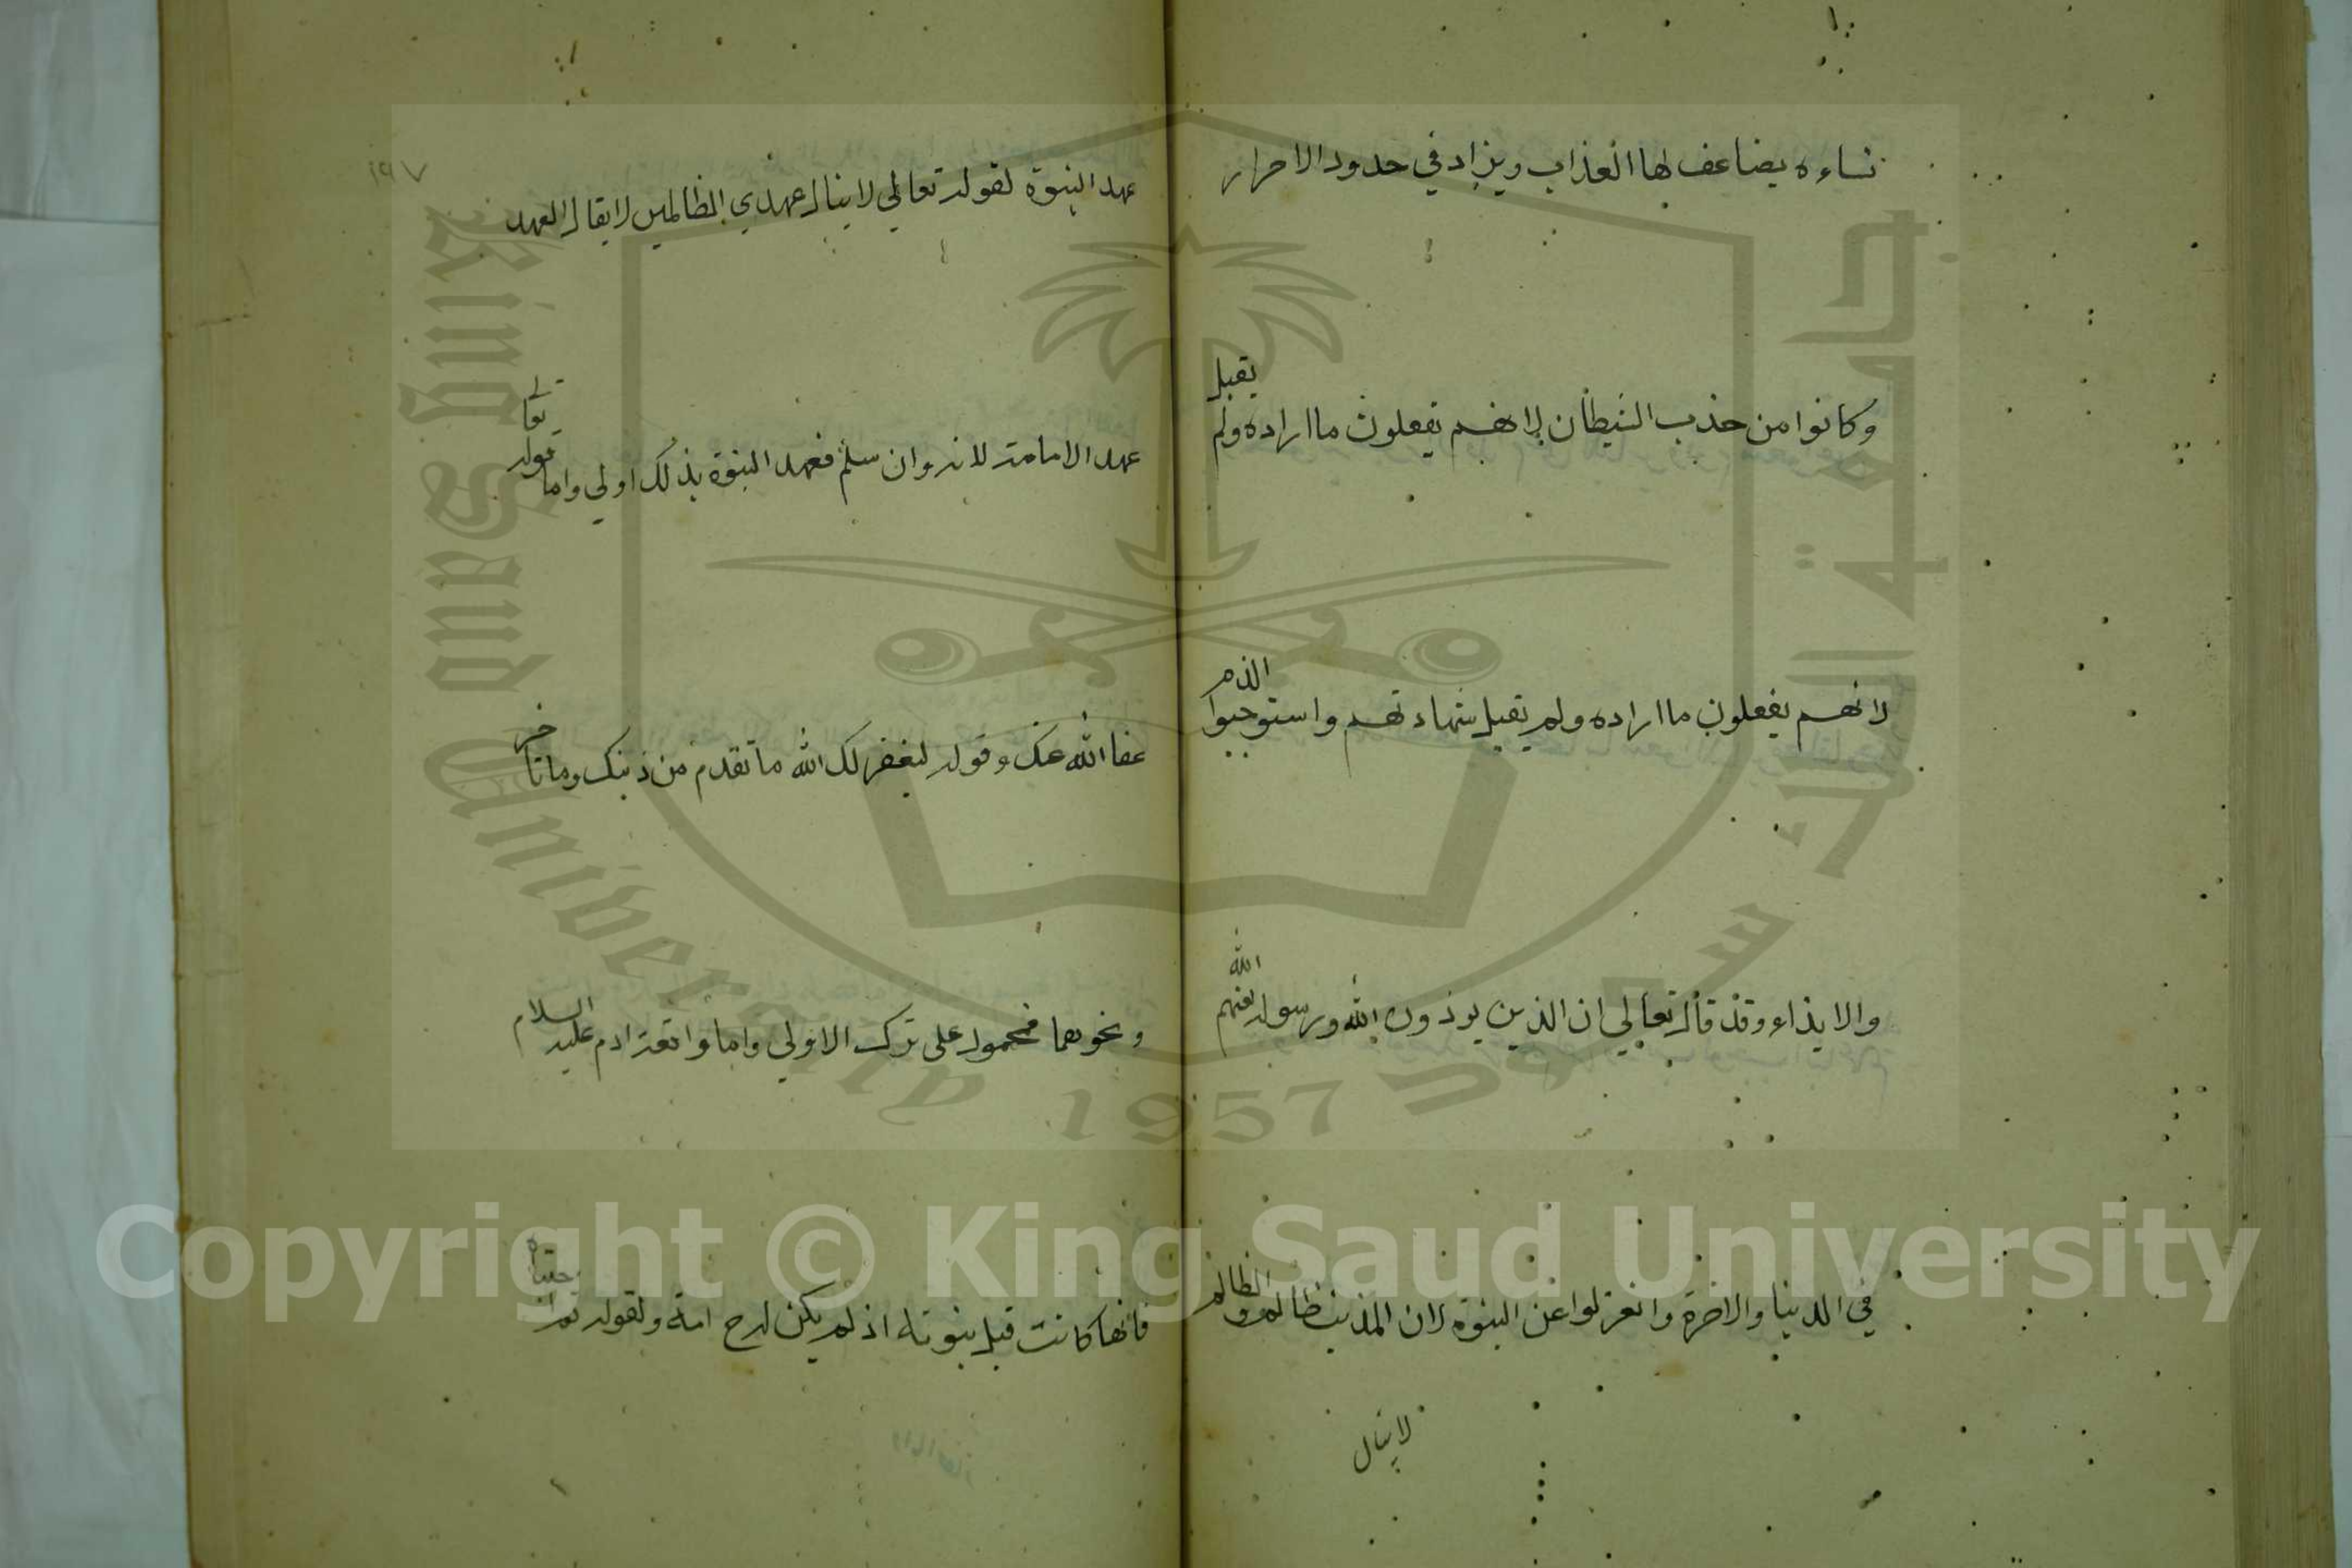 نساءه يضاعف لها العذاب ويزاد في حدود الاحرار
وكانوا من حذب الشيطان لانهم يفعلون ما اراده ولم يقبل
لانهم يفعلون ما اراده ولم يقبل شهادتهم واستوجبوا الذم
والايذاء وقد قال تعالي ان الذين يوذون الله ورسوله لعنهم الله
في الدنيا والاخرة وانعزلوا عن النبوة لان المذنب ظالم والظالم
لا ينال
١٩٧
عهد النبوة لقوله تعالي لا ينال عهدي الظالمين لا يقال العهد
عهد الامامة لانه وان سلم فعهد النبوة بذلك اولي واما قوله تعالي
عفا الله عنك وقوله ليغفر لك الله ما تقدم من ذنبك وما تاخر
ونحوهما فمحمول علي ترك الاولي واما واقعة ادم عليه السلام
فانها كانت قبل نبوته اذ لم يكن له ح امة ولقوله ثم اجتباه
Copyright © King Saud University
King Saud University
1957
جامعة الملك سعود